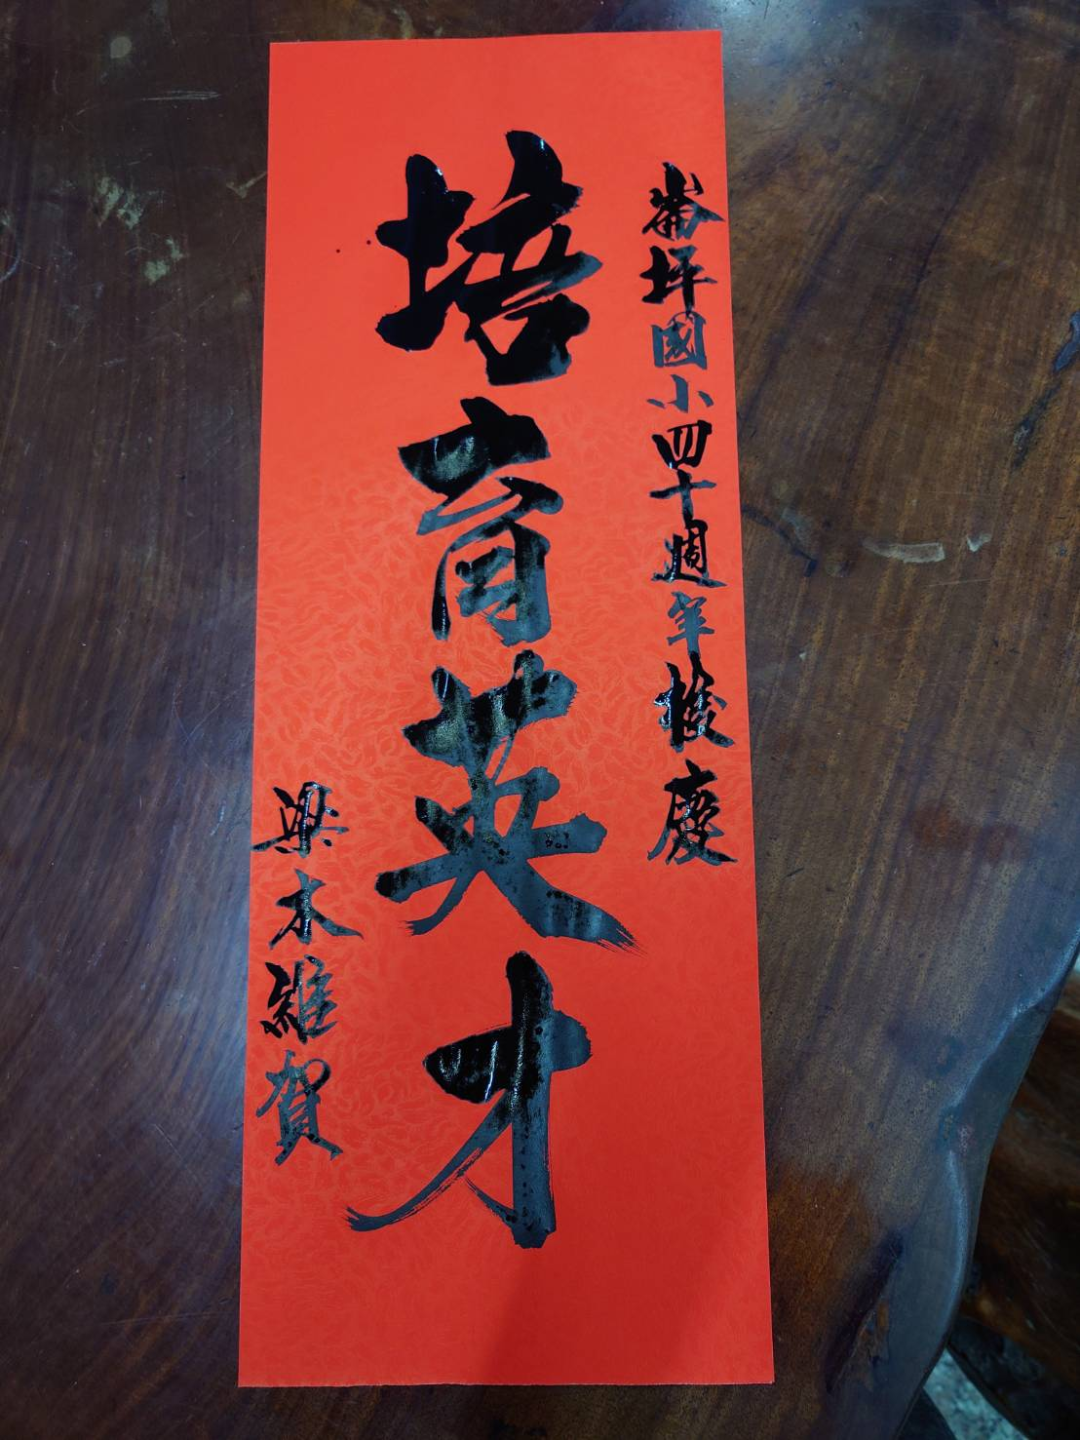 崙坪國小四十週年校慶
培育英才
梁木維賀